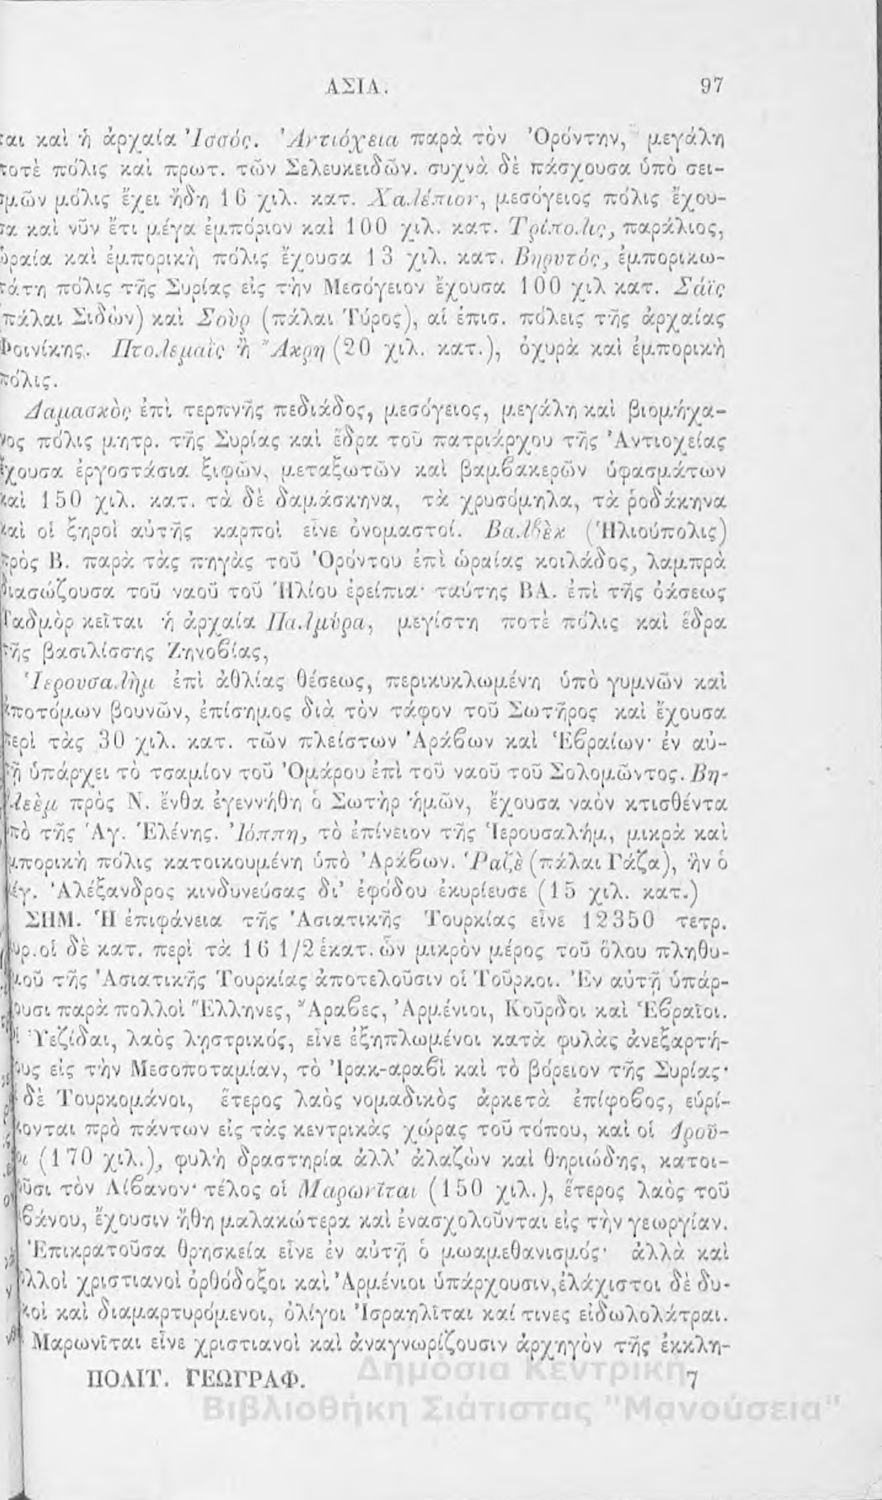 ΑΣΙΑ. 97
ται καὶ ἡ ἀρχαία Ἰσσός. Ἀντιόχεια παρὰ τὸν Ὀρόντην, μεγάλη
ποτὲ πόλις καὶ πρωτ. τῶν Σελευκειδῶν. συχνὰ δὲ πάσχουσα ὑπὸ σει-
σμῶν μόλις ἔχει ἤδη 16 χιλ. κατ. Χαλέπιον, μεσόγειος πόλις ἔχου-
σα καὶ νῦν ἔτι μέγα ἐμπόριον καὶ 100 χιλ. κατ. Τρίπολις, παράλιος,
ὡραία καὶ ἐμπορικὴ πόλις ἔχουσα 13 χιλ. κατ. Βηρυτός, ἐμπορικω-
τάτη πόλις τῆς Συρίας εἰς τὴν Μεσόγειον ἔχουσα 100 χιλ κατ. Σάϊς
πάλαι Σιδὼν) καὶ Σοὺρ (πάλαι Τύρος), αἱ ἐπισ. πόλεις τῆς ἀρχαίας
Φοινίκης. Πτολεμαῒς ἢ Ἄκρη (20 χιλ. κατ.), ὀχυρὰ καὶ ἐμπορικὴ
πόλις.
Δαμασκὸς ἐπὶ τερπνῆς πεδιάδος, μεσόγειος, μεγάλη καὶ βιομήχα-
νος πόλις μητρ. τῆς Συρίας καὶ ἕδρα τοῦ πατριάρχου τῆς Ἀντιοχείας
ἔχουσα ἐργοστάσια ξιφῶν, μεταξωτῶν καὶ βαμβακερῶν ὑφασμάτων
καὶ 150 χιλ. κατ. τὰ δὲ δαμάσκηνα, τὰ χρυσόμηλα, τὰ ῥοδάκηνα
καὶ οἱ ξηροὶ αὐτῆς καρποὶ εἶνε ὀνομαστοί. Βαλβὲκ (Ἡλιούπολις)
πρὸς Β. παρὰ τὰς πηγὰς τοῦ Ὀρόντου ἐπὶ ὡραίας κοιλάδος, λαμπρὰ
διασώζουσα τοῦ ναοῦ τοῦ Ἡλίου ἐρείπια· ταύτης ΒΑ. ἐπὶ τῆς ὀάσεως
Ταδμὸρ κεῖται ἡ ἀρχαία Παλμύρα, μεγίστη ποτὲ πόλις καὶ ἕδρα
τῆς βασιλίσσης Ζηνοβίας,
Ἱερουσαλὴμ ἐπὶ ἀθλίας θέσεως, περικυκλωμένη ὑπὸ γυμνῶν καὶ
ἀποτόμων βουνῶν, ἐπίσημος διὰ τὸν τάφον τοῦ Σωτῆρος καὶ ἔχουσα
περὶ τὰς 30 χιλ. κατ. τῶν πλείστων Ἀράβων καὶ Ἑβραίων· ἐν αὐ-
τῇ ὑπάρχει τὸ τσαμίον τοῦ Ὀμάρου ἐπὶ τοῦ ναοῦ τοῦ Σολομῶντος. Βη-
θλεὲμ πρὸς Ν. ἔνθα ἐγεννήθη ὁ Σωτὴρ ἡμῶν, ἔχουσα ναὸν κτισθέντα
ὑπὸ τῆς Ἁγ. Ἑλένης. Ἰόππη, τὸ ἐπίνειον τῆς Ἱερουσαλήμ, μικρὰ καὶ
ἐμπορικὴ πόλις κατοικουμένη ὑπὸ Ἀράβων. Ῥαζὲ (πάλαι Γάζα), ἣν ὁ
μέγ. Ἀλέξανδρος κινδυνεύσας δι' ἐφόδου ἐκυρίευσε (15 χιλ. κατ.)
ΣΗΜ. Ἡ ἐπιφάνεια τῆς Ἀσιατικῆς Τουρκίας εἶνε 12350 τετρ.
μυρ. οἱ δὲ κατ. περὶ τὰ 16 1/2 ἑκατ. ὧν μικρὸν μέρος τοῦ ὅλου πληθυ-
σμοῦ τῆς Ἀσιατικῆς Τουρκίας ἀποτελοῦσιν οἱ Τοῦρκοι. Ἐν αὐτῇ ὑπάρ-
χουσι παρὰ πολλοὶ Ἕλληνες, Ἄραβες, Ἀρμένιοι, Κοῦρδοι καὶ Ἑβραῖοι.
Οἱ Ὑεζίδαι, λαὸς λῃστρικός, εἶνε ἐξηπλωμένοι κατὰ φυλὰς ἀνεξαρτή-
τους εἰς τὴν Μεσοποταμίαν, τὸ Ἰρακ-αραβὶ καὶ τὸ βόρειον τῆς Συρίας·
δὲ Τουρκομάνοι, ἕτερος λαὸς νομαδικὸς ἀρκετὰ ἐπίφοβος, εὑρί-
σκονται πρὸ πάντων εἰς τὰς κεντρικὰς χώρας τοῦ τόπου, καὶ οἱ Δροῦ-
σοι (170 χιλ.), φυλὴ δραστηρία ἀλλ' ἀλαζὼν καὶ θηριώδης, κατοι-
κοῦσι τὸν Λίβανον· τέλος οἱ Μαρωνῖται (150 χιλ.), ἕτερος λαὸς τοῦ
Λιβάνου, ἔχουσιν ἤθη μαλακώτερα καὶ ἐνασχολοῦνται εἰς τὴν γεωργίαν.
Ἐπικρατοῦσα θρησκεία εἶνε ἐν αὐτῇ ὁ μωαμεθανισμός· ἀλλὰ καὶ
πολλοὶ χριστιανοὶ ὀρθόδοξοι καὶ Ἀρμένιοι ὑπάρχουσιν, ἐλάχιστοι δὲ δυ-
τικοὶ καὶ διαμαρτυρόμενοι, ὀλίγοι Ἰσραηλῖται καί τινες εἰδωλολάτραι.
Μαρωνῖται εἶνε χριστιανοὶ καὶ ἀναγνωρίζουσιν ἀρχηγὸν τῆς ἐκκλη-
ΠΟΛΙΤ. ΓΕΩΓΡΑΦ. 7
Δημόσια Κεντρική
Βιβλιοθήκη Σιάτιστας "Μανούσεια"